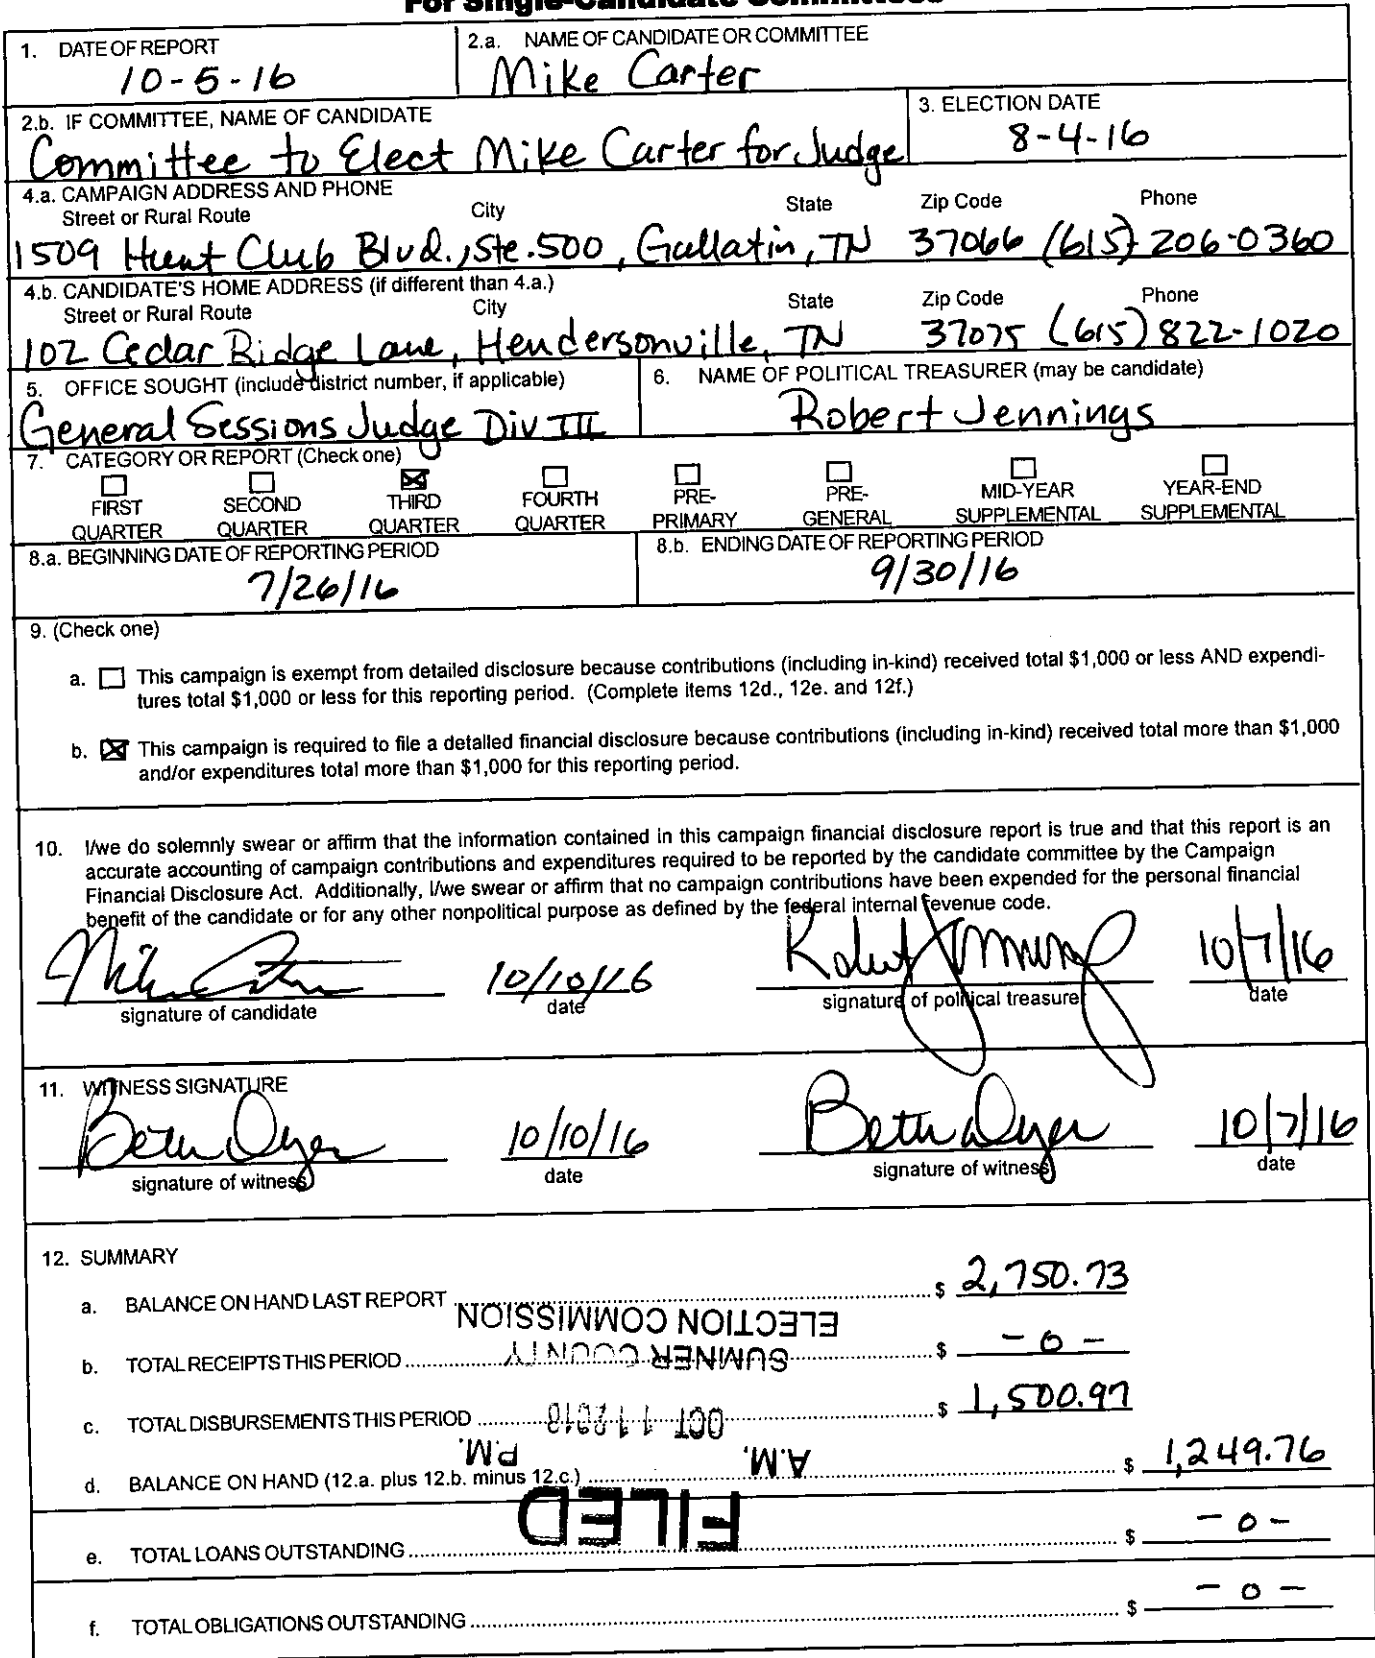 For Single-Candidate Committees
1. DATE OF REPORT
10-5-16
2.a. NAME OF CANDIDATE OR COMMITTEE
Mike Carter
2.b. IF COMMITTEE, NAME OF CANDIDATE
Committee to Elect Mike Carter for Judge
3. ELECTION DATE
8-4-16
4.a. CAMPAIGN ADDRESS AND PHONE
Street or Rural Route City State Zip Code Phone
1509 Hunt Club Blvd., Ste. 500, Gallatin, TN 37066 (615) 206-0360
4.b. CANDIDATE'S HOME ADDRESS (if different than 4.a.)
Street or Rural Route City State Zip Code Phone
102 Cedar Ridge Lane, Hendersonville, TN 37075 (615) 822-1020
5. OFFICE SOUGHT (include district number, if applicable)
General Sessions Judge Div III
6. NAME OF POLITICAL TREASURER (may be candidate)
Robert Jennings
7. CATEGORY OR REPORT (Check one)
FIRST QUARTER
SECOND QUARTER
THIRD QUARTER
FOURTH QUARTER
PRE-PRIMARY
PRE-GENERAL
MID-YEAR SUPPLEMENTAL
YEAR-END SUPPLEMENTAL
8.a. BEGINNING DATE OF REPORTING PERIOD
7/26/16
8.b. ENDING DATE OF REPORTING PERIOD
9/30/16
9. (Check one)
a. This campaign is exempt from detailed disclosure because contributions (including in-kind) received total $1,000 or less AND expendi-
tures total $1,000 or less for this reporting period. (Complete items 12d., 12e. and 12f.)
b. This campaign is required to file a detailed financial disclosure because contributions (including in-kind) received total more than $1,000
and/or expenditures total more than $1,000 for this reporting period.
10. I/we do solemnly swear or affirm that the information contained in this campaign financial disclosure report is true and that this report is an
accurate accounting of campaign contributions and expenditures required to be reported by the candidate committee by the Campaign
Financial Disclosure Act. Additionally, I/we swear or affirm that no campaign contributions have been expended for the personal financial
benefit of the candidate or for any other nonpolitical purpose as defined by the federal internal revenue code.
Mike Carter 10/10/16 Robert Jennings 10/7/16
signature of candidate date signature of political treasurer date
11. WITNESS SIGNATURE
Beth Dyer 10/10/16 Beth Dyer 10/7/16
signature of witness date signature of witness date
12. SUMMARY
a. BALANCE ON HAND LAST REPORT $ 2,750.73
ELECTION COMMISSION
b. TOTAL RECEIPTS THIS PERIOD $ -0-
SUMNER COUNTY
c. TOTAL DISBURSEMENTS THIS PERIOD $ 1,500.97
OCT 11 2016
A.M. P.M.
d. BALANCE ON HAND (12.a. plus 12.b. minus 12.c.) $ 1,249.76
FILED
e. TOTAL LOANS OUTSTANDING $ -0-
f. TOTAL OBLIGATIONS OUTSTANDING $ -0-